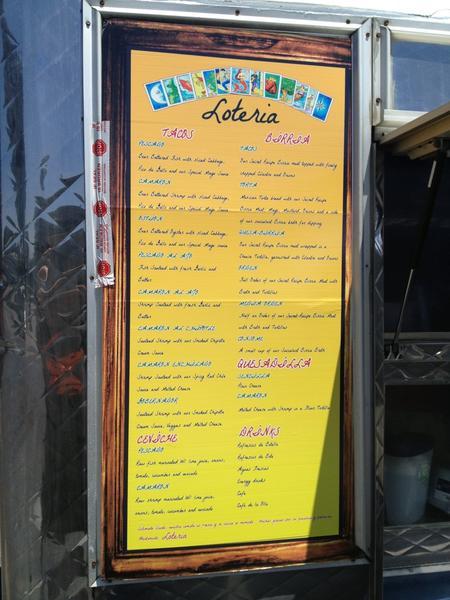 Loteria
TACOS
PESCADO
Beer Battered Fish with sliced Cabbage,
Pico de Gallo and our Special Mayo Sauce
CAMARON
Beer Battered Shrimp with sliced Cabbage,
Pico de Gallo and our Special Mayo Sauce
OSTION
Beer Battered Oyster with sliced Cabbage,
Pico de Gallo and our Special Mayo Sauce
PESCADO AL AJO
Fish Sauteed with fresh Garlic and
Butter
CAMARON AL AJO
Shrimp Sauteed with fresh Garlic and
Butter
CAMARON AL CHIPOTLE
Sauteed Shrimp with our Smoked Chipotle
Cream Sauce
CAMARON ENCHILADO
Shrimp Sauteed with our Spicy Red Chile
Sauce and Melted Cheese
GOBERNADOR
Sauteed Shrimp with our Smoked Chipotle
Cream Sauce, Veggies and Melted Cheese
CEVICHE
PESCADO
Raw fish marinated W/ lime juice, onions,
tomato, cucumber and avocado
CAMARON
Raw shrimp marinated W/ lime juice,
onions, tomato, cucumber and avocado
BIRRIA
TACOS
Our Secret Recipe Birria meat topped with finely
chopped Cilantro and Onions
TORTA
Mexican Torta bread with our Secret Recipe
Birria Meat, Mayo, Mustard, Onions and a side
of our succulent Birria broth for dipping
QUESA-BIRRIA
Our Secret Recipe Birria meat wrapped in a
Cheese Tortilla, garnished with Cilantro and Onions
ORDEN
Full Order of our Secret Recipe Birria Meat with
Broth and Tortillas
MEDIA ORDEN
Half an Order of our Secret Recipe Birria Meat
with Broth and Tortillas
CONSOME
A small cup of our Succulent Birria Broth
QUESADILLA
SENCILLA
Plain Cheese
CAMARON
Melted Cheese with Shrimp in a Flour Tortilla
DRINKS
Refrescos de Botella
Refrescos de Bote
Aguas Frescas
Energy drinks
Cafe
Cafe de la Olla
Loteria